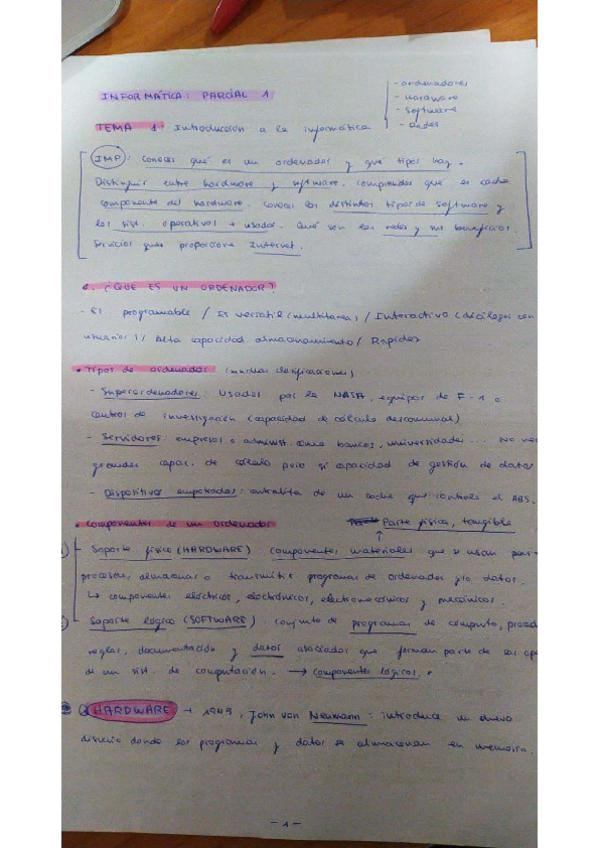 INFORMÁTICA: PARCIAL 1
- ordenadores
- Hardware
- Software
- Redes
TEMA 1: Introducción a la informática
IMP: Conocer qué es un ordenador y qué tipos hay.
Distinguir entre hardware y software. Comprender qué es cada
componente del hardware. Conocer los distintos tipos de software y
los sist. operativos + usados. Qué son las redes y sus beneficios.
Servicios que proporciona Internet.
¿QUE ES UN ORDENADOR?
- Es programable / Es versatil (multitarea) / Interactivo (diálogos con
usuarios) / Alta capacidad almacenamiento / Rapidez
• Tipos de ordenador (muchas clasificaciones)
- Superordenadores: Usados por la NASA, equipos de F-1 o
centros de investigación (capacidad de cálculo descomunal)
- Servidores: empresas o administ. como bancos, universidades... No
grandes capac. de cálculo pero sí capacidad de gestión de datos
- Dispositivos empotrados: centralita de un coche que controla el ABS.
• Componentes de un ordenador
Parte física, tangible
Soporte físico (HARDWARE) componentes materiales que se usan para
procesar, almacenar o transmitir programas de ordenador y/o datos.
↳ componentes eléctricos, electrónicos, electromecánicos y mecánicos.
Soporte lógico (SOFTWARE): conjunto de programas de computo,
reglas, documentación y datos asociados que forman parte de las
de un sist. de computación. → componentes lógicos.
HARDWARE → 1945, John von Neumann: introduce un nuevo
diseño donde los programas y datos se almacenan en memoria.
- 1 -